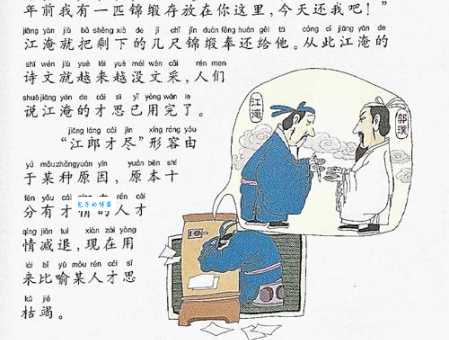 年前我有一匹锦缎存放在你这里,今天还我吧!”
jiāng yān jiù bǎ shèng xià de jǐ chǐ jǐn duàn fèng huán gěi tā cóng cǐ jiāng yān de
江淹就把剩下的几尺锦缎奉还给他。从此江淹的
shī wén jiù yuè lái yuè méi wén cǎi rén men
诗文就越来越没文采,人们
shuō jiāng yān de cái sī yǐ yòng wán le
说江淹的才思已用完了。
jiāng láng cái jìn xíng róng yóu
“江郎才尽”形容由
yú mǒu zhǒng yuán yīn yuán běn shí
于某种原因,原本十
fēn yǒu cái qíng de rén cái
分有才情的人才
qíng jiǎn tuì xiàn zài yòng
情减退,现在用
lái bǐ yù mǒu rén cái sī
来比喻某人才思
kū jié
枯竭。
江淹
郭璞